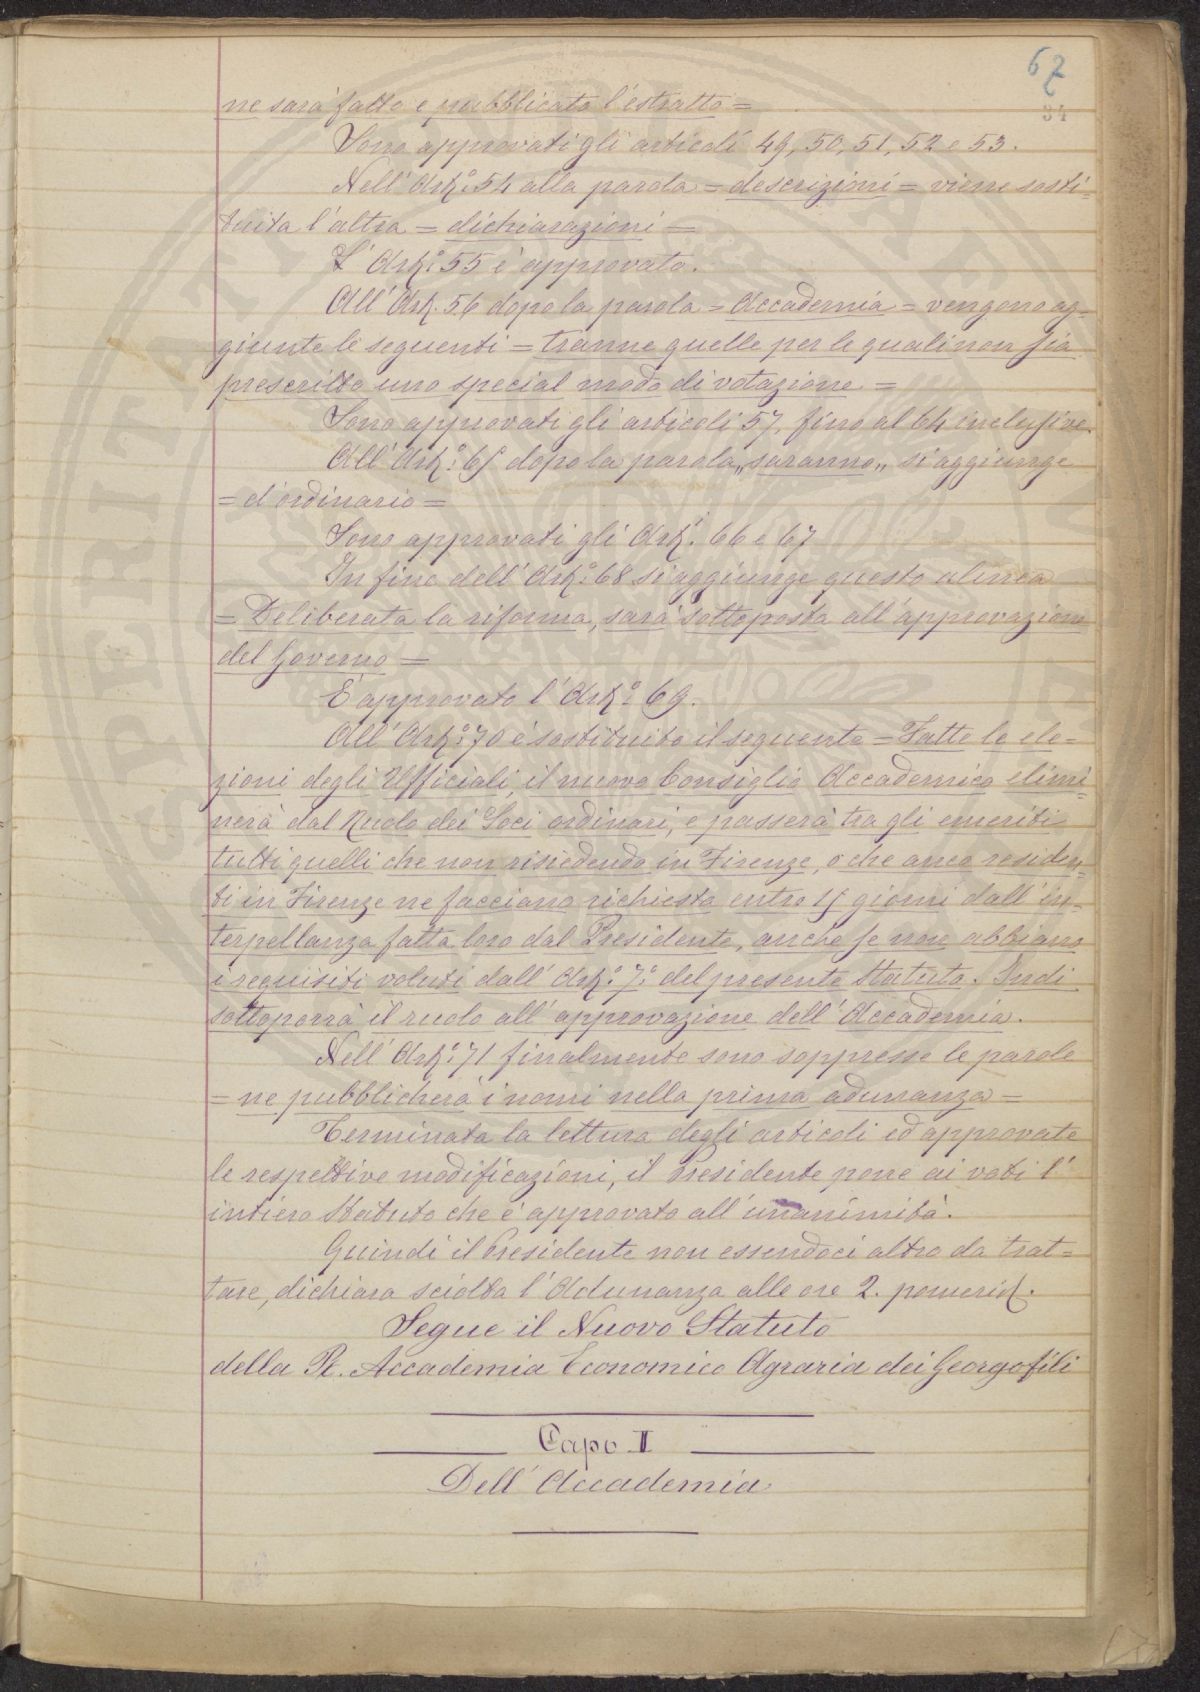 67
34
ne sarà fatto e pubblicato l'estratto =
Sono approvati gli articoli 49, 50, 51, 52 e 53.
Nell' Art.º 54 alla parola = descrizioni = viene sosti=
tuita l'altra = dichiarazioni =
L' Art.º 55 è approvato.
All' Art. 56 dopo la parola = Accademia = vengono ag=
giunte le seguenti = tranne quelle per le quali non sia
prescritto uno special modo di votazione =
Sono approvati gli articoli 57, fino al 64 inclusive.
All' Art.º 65 dopo la parola „saranno„ si aggiunge
= d'ordinario =
Sono approvati gli Art.i 66 e 67
In fine dell' Art.º 68 si aggiunge questo alinea
= Deliberata la riforma, sarà sottoposta all'approvazione
del Governo =
È approvato l' Art.º 69.
All' Art.º 70 è sostituito il seguente = Fatte le ele=
zioni degli Ufficiali, il nuovo Consiglio Accademico elimi=
nerà dal Ruolo dei Soci ordinari, e passerà tra gli emeriti
tutti quelli che non risiedendo in Firenze, o che anco residen=
ti in Firenze ne facciano richiesta entro 15 giorni dall' in=
terpellanza fatta loro dal Presidente, anche se non abbiano
i requisiti voluti dall' Art.º 7.º del presente Statuto. Indi
sottoporrà il ruolo all' approvazione dell' Accademia.
Nell' Art.º 71 finalmente sono soppresse le parole
= ne pubblicherà i nomi nella prima adunanza =
Terminata la lettura degli articoli ed approvate
le respettive modificazioni, il Presidente pone ai voti l'
intiero Statuto che è approvato all' unanimità.
Quindi il Presidente non essendoci altro da trat=
tare, dichiara sciolta l' Adunanza alle ore 2. pomerid.
Segue il Nuovo Statuto
della R. Accademia Economico Agraria dei Georgofili
Capo I
Dell' Accademia